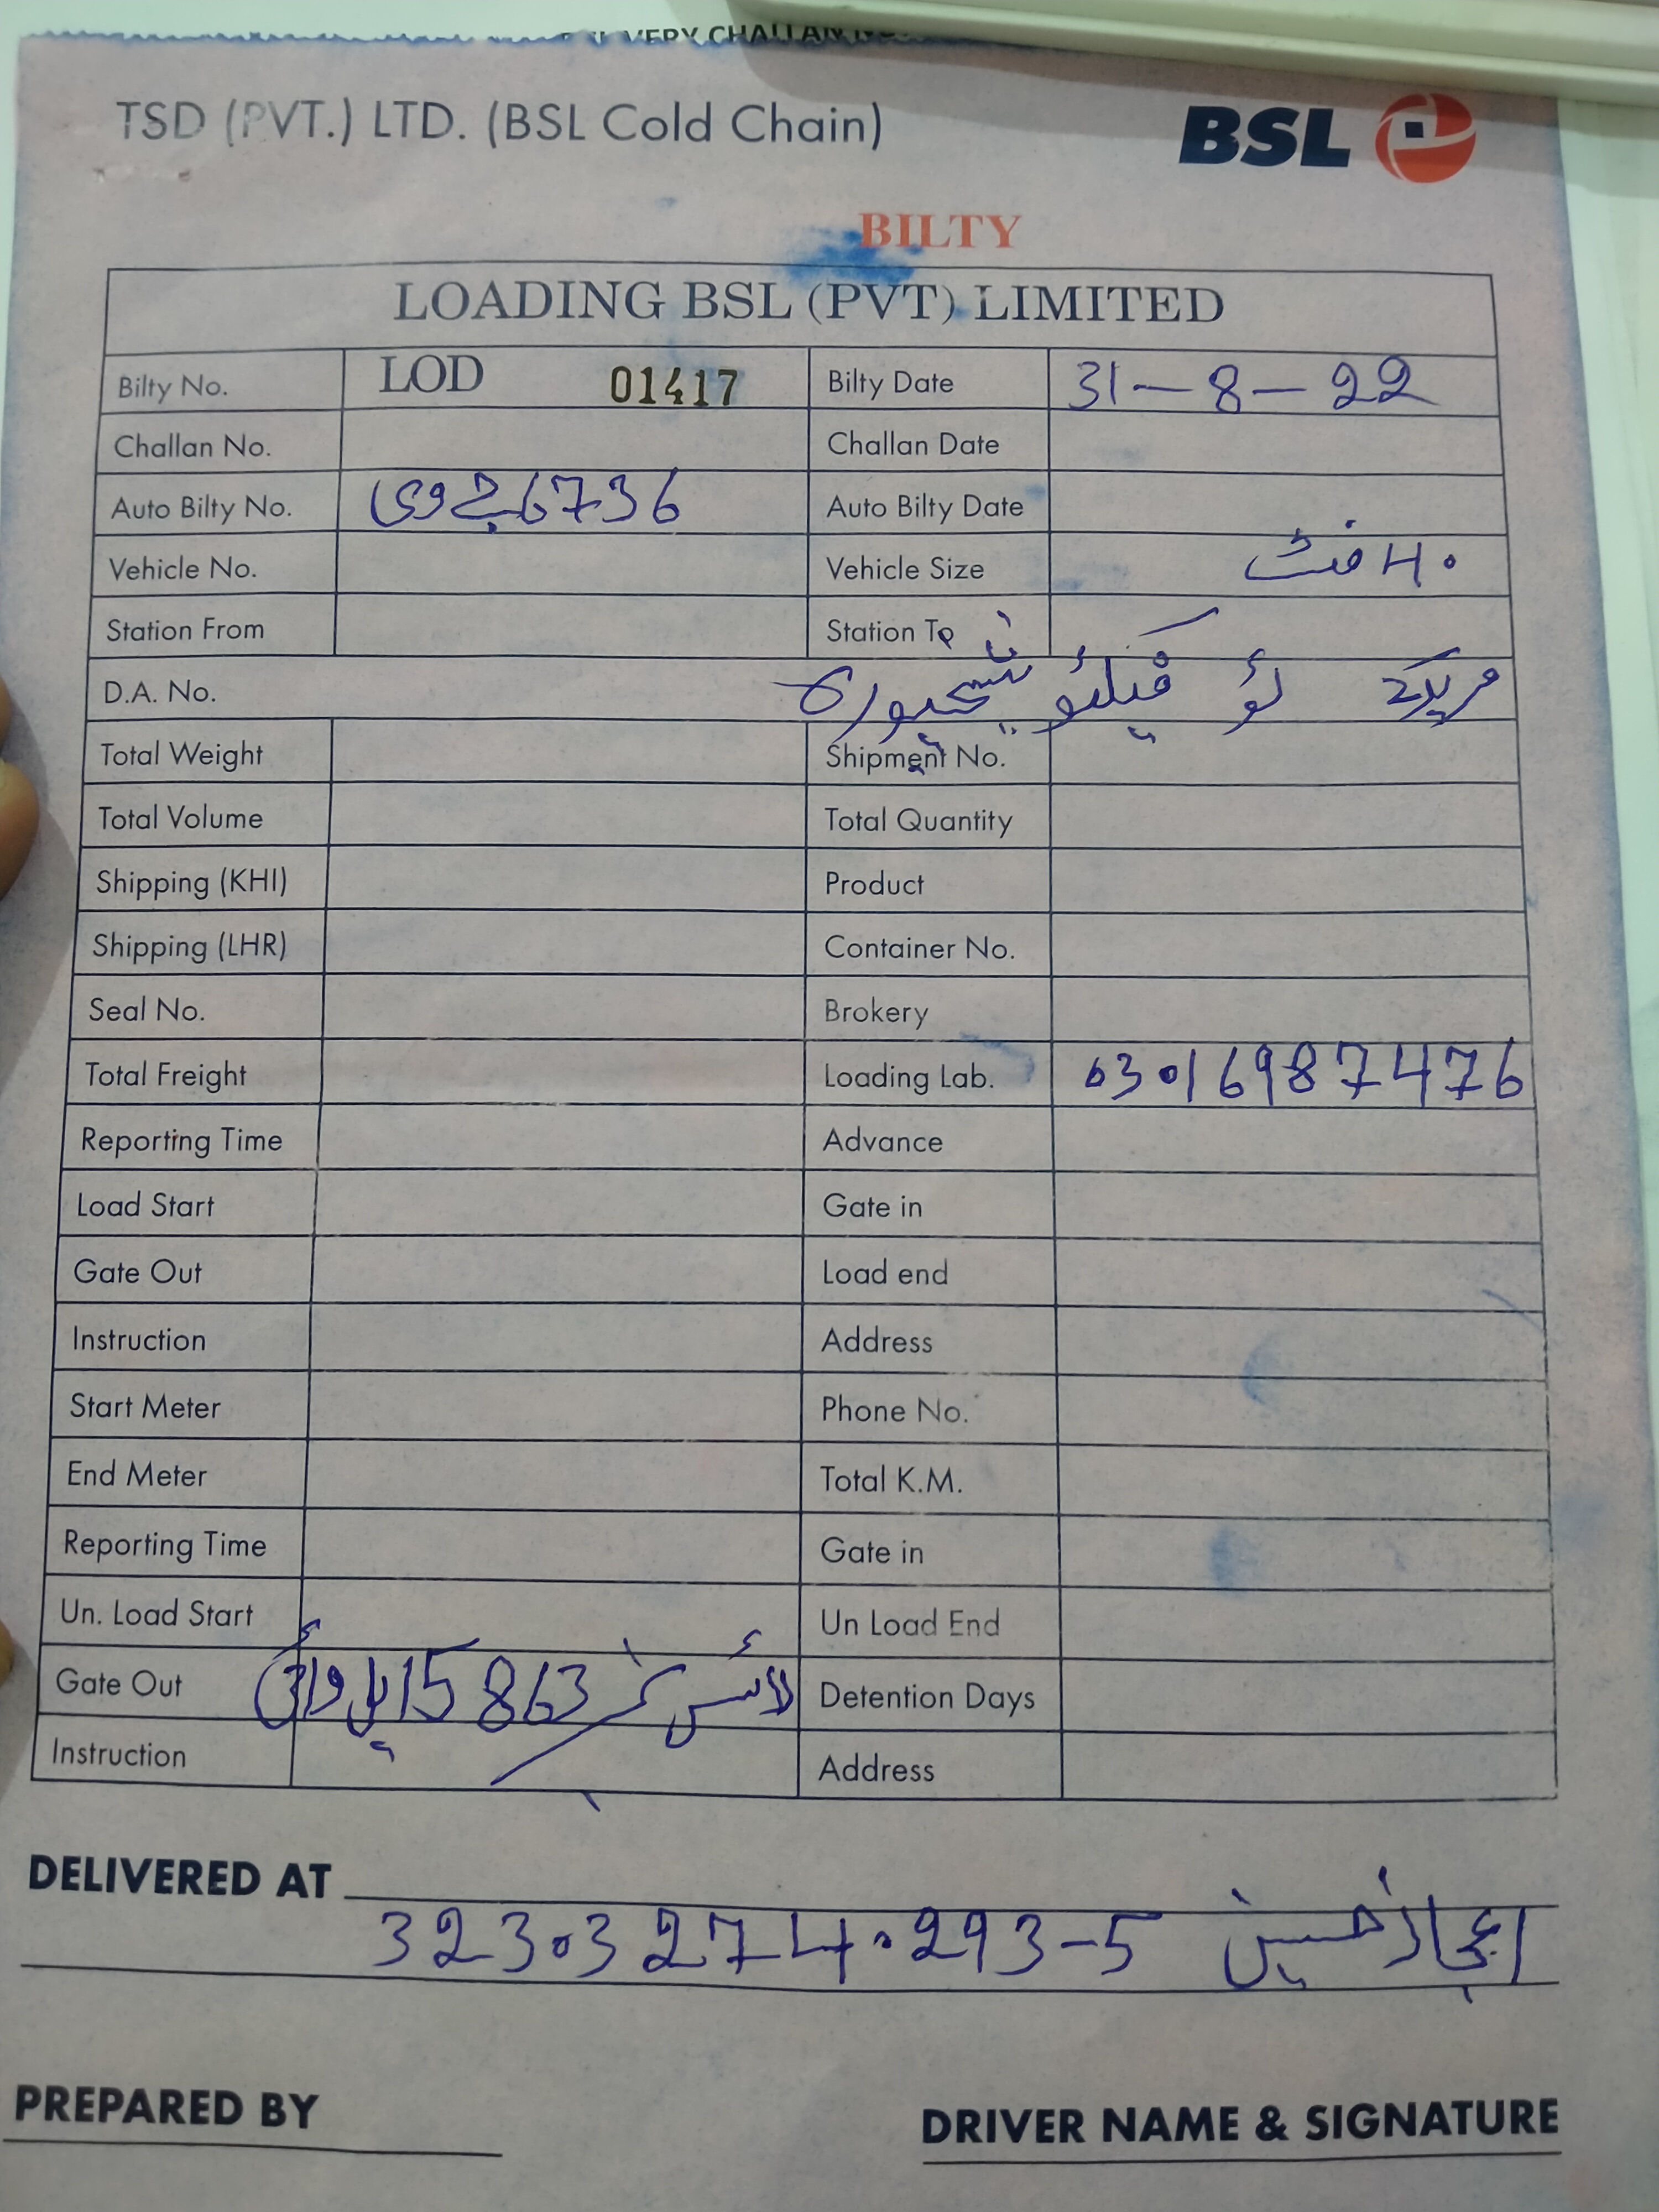 TSD (PVT.) LTD. (BSL Cold Chain) BSL
BILTY
LOADING BSL (PVT) LIMITED
Bilty No. LOD 01417 Bilty Date 31-8-22
Challan No. Challan Date
Auto Bilty No. 6736 جے وی Auto Bilty Date
Vehicle No. Vehicle Size 40 فٹ
Station From Station To
D.A. No. مریدکے ٹو شیخوپورہ
Total Weight Shipment No.
Total Volume Total Quantity
Shipping (KHI) Product
Shipping (LHR) Container No.
Seal No. Brokery
Total Freight Loading Lab. 03016987476
Reporting Time Advance
Load Start Gate in
Gate Out Load end
Instruction Address
Start Meter Phone No.
End Meter Total K.M.
Reporting Time Gate in
Un. Load Start Un Load End
Gate Out 15863 Detention Days
Instruction Address
DELIVERED AT
اعجاز حسین 323032740293-5
PREPARED BY DRIVER NAME & SIGNATURE